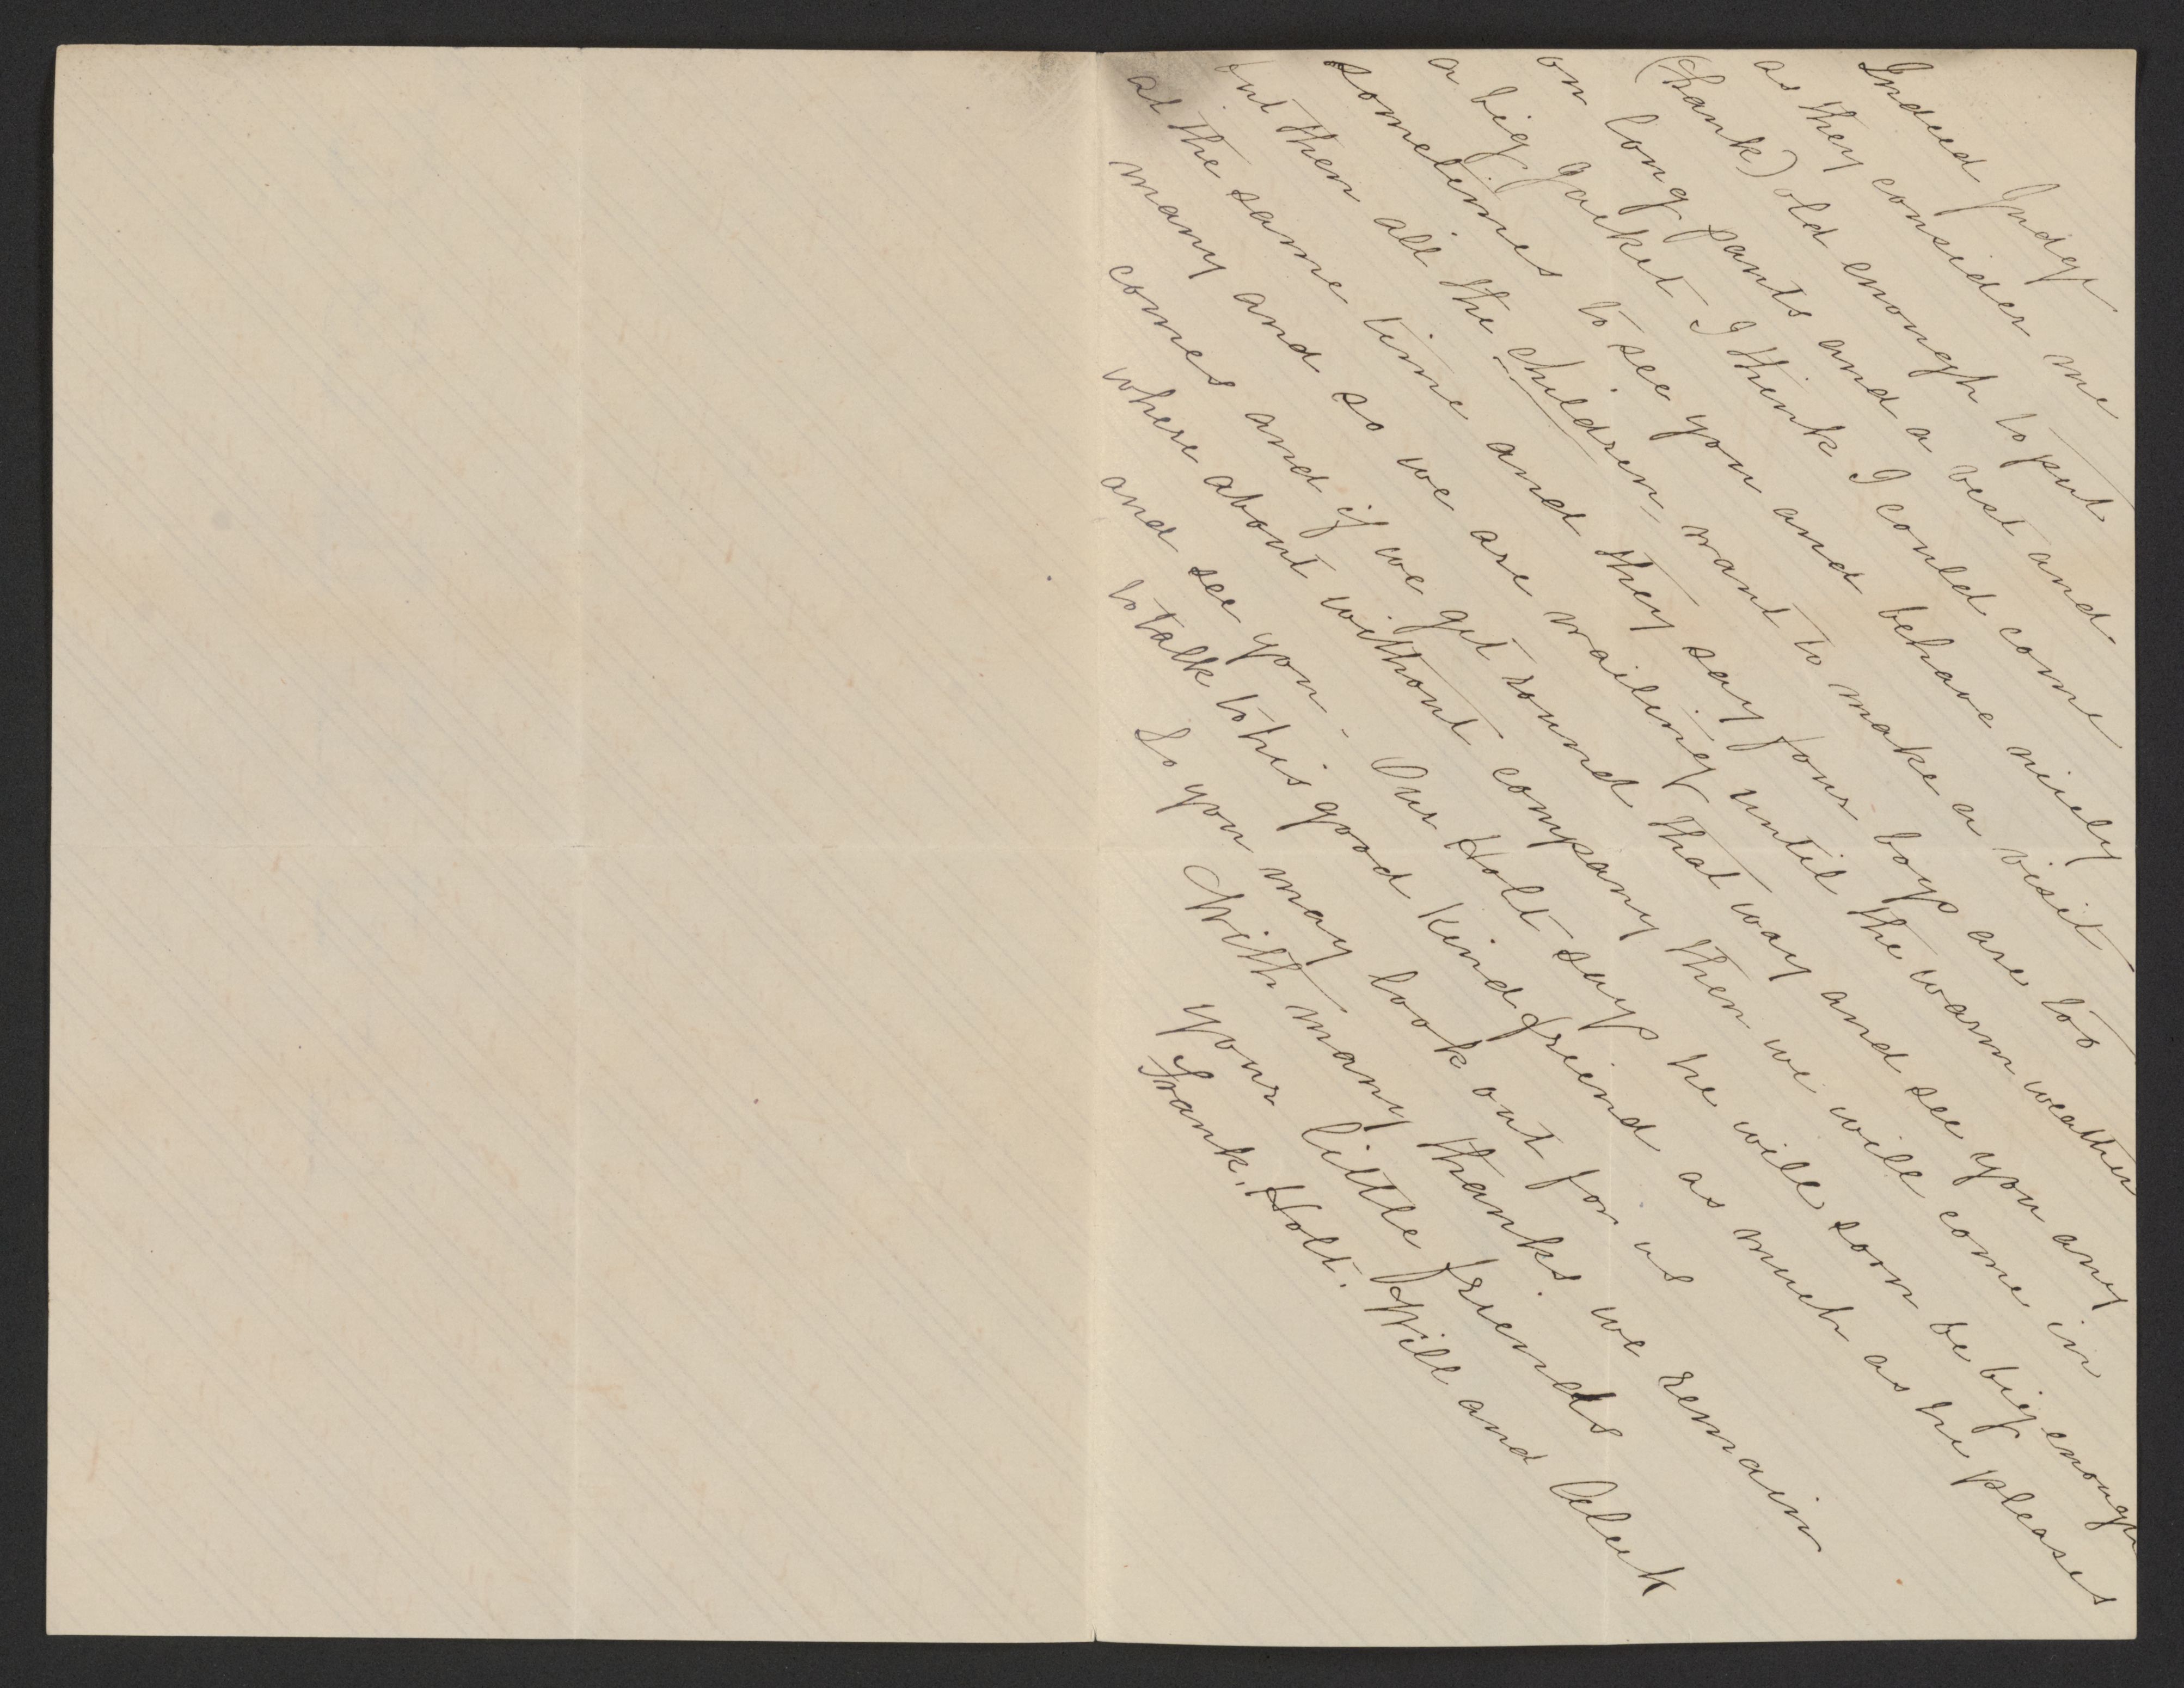 Indeed Judge
as they consider me
(Frank) old enough to put
on long pants and a vest and
a big Jacket I think I could come
sometimes to see you and behave nicely
but then all the children, want to make a visit
at the same time and they say four boys are too
many and so we are waiting until the warm weather
comes and if we get round that way and see you any
where about without company then we will come in
and see you - Our Holt says he will soon be big enough
to talk to his good kind friend as much as he pleases
So you may look out for us
With many thanks we remain
your little friends
Frank, Holt. Will and Aleck